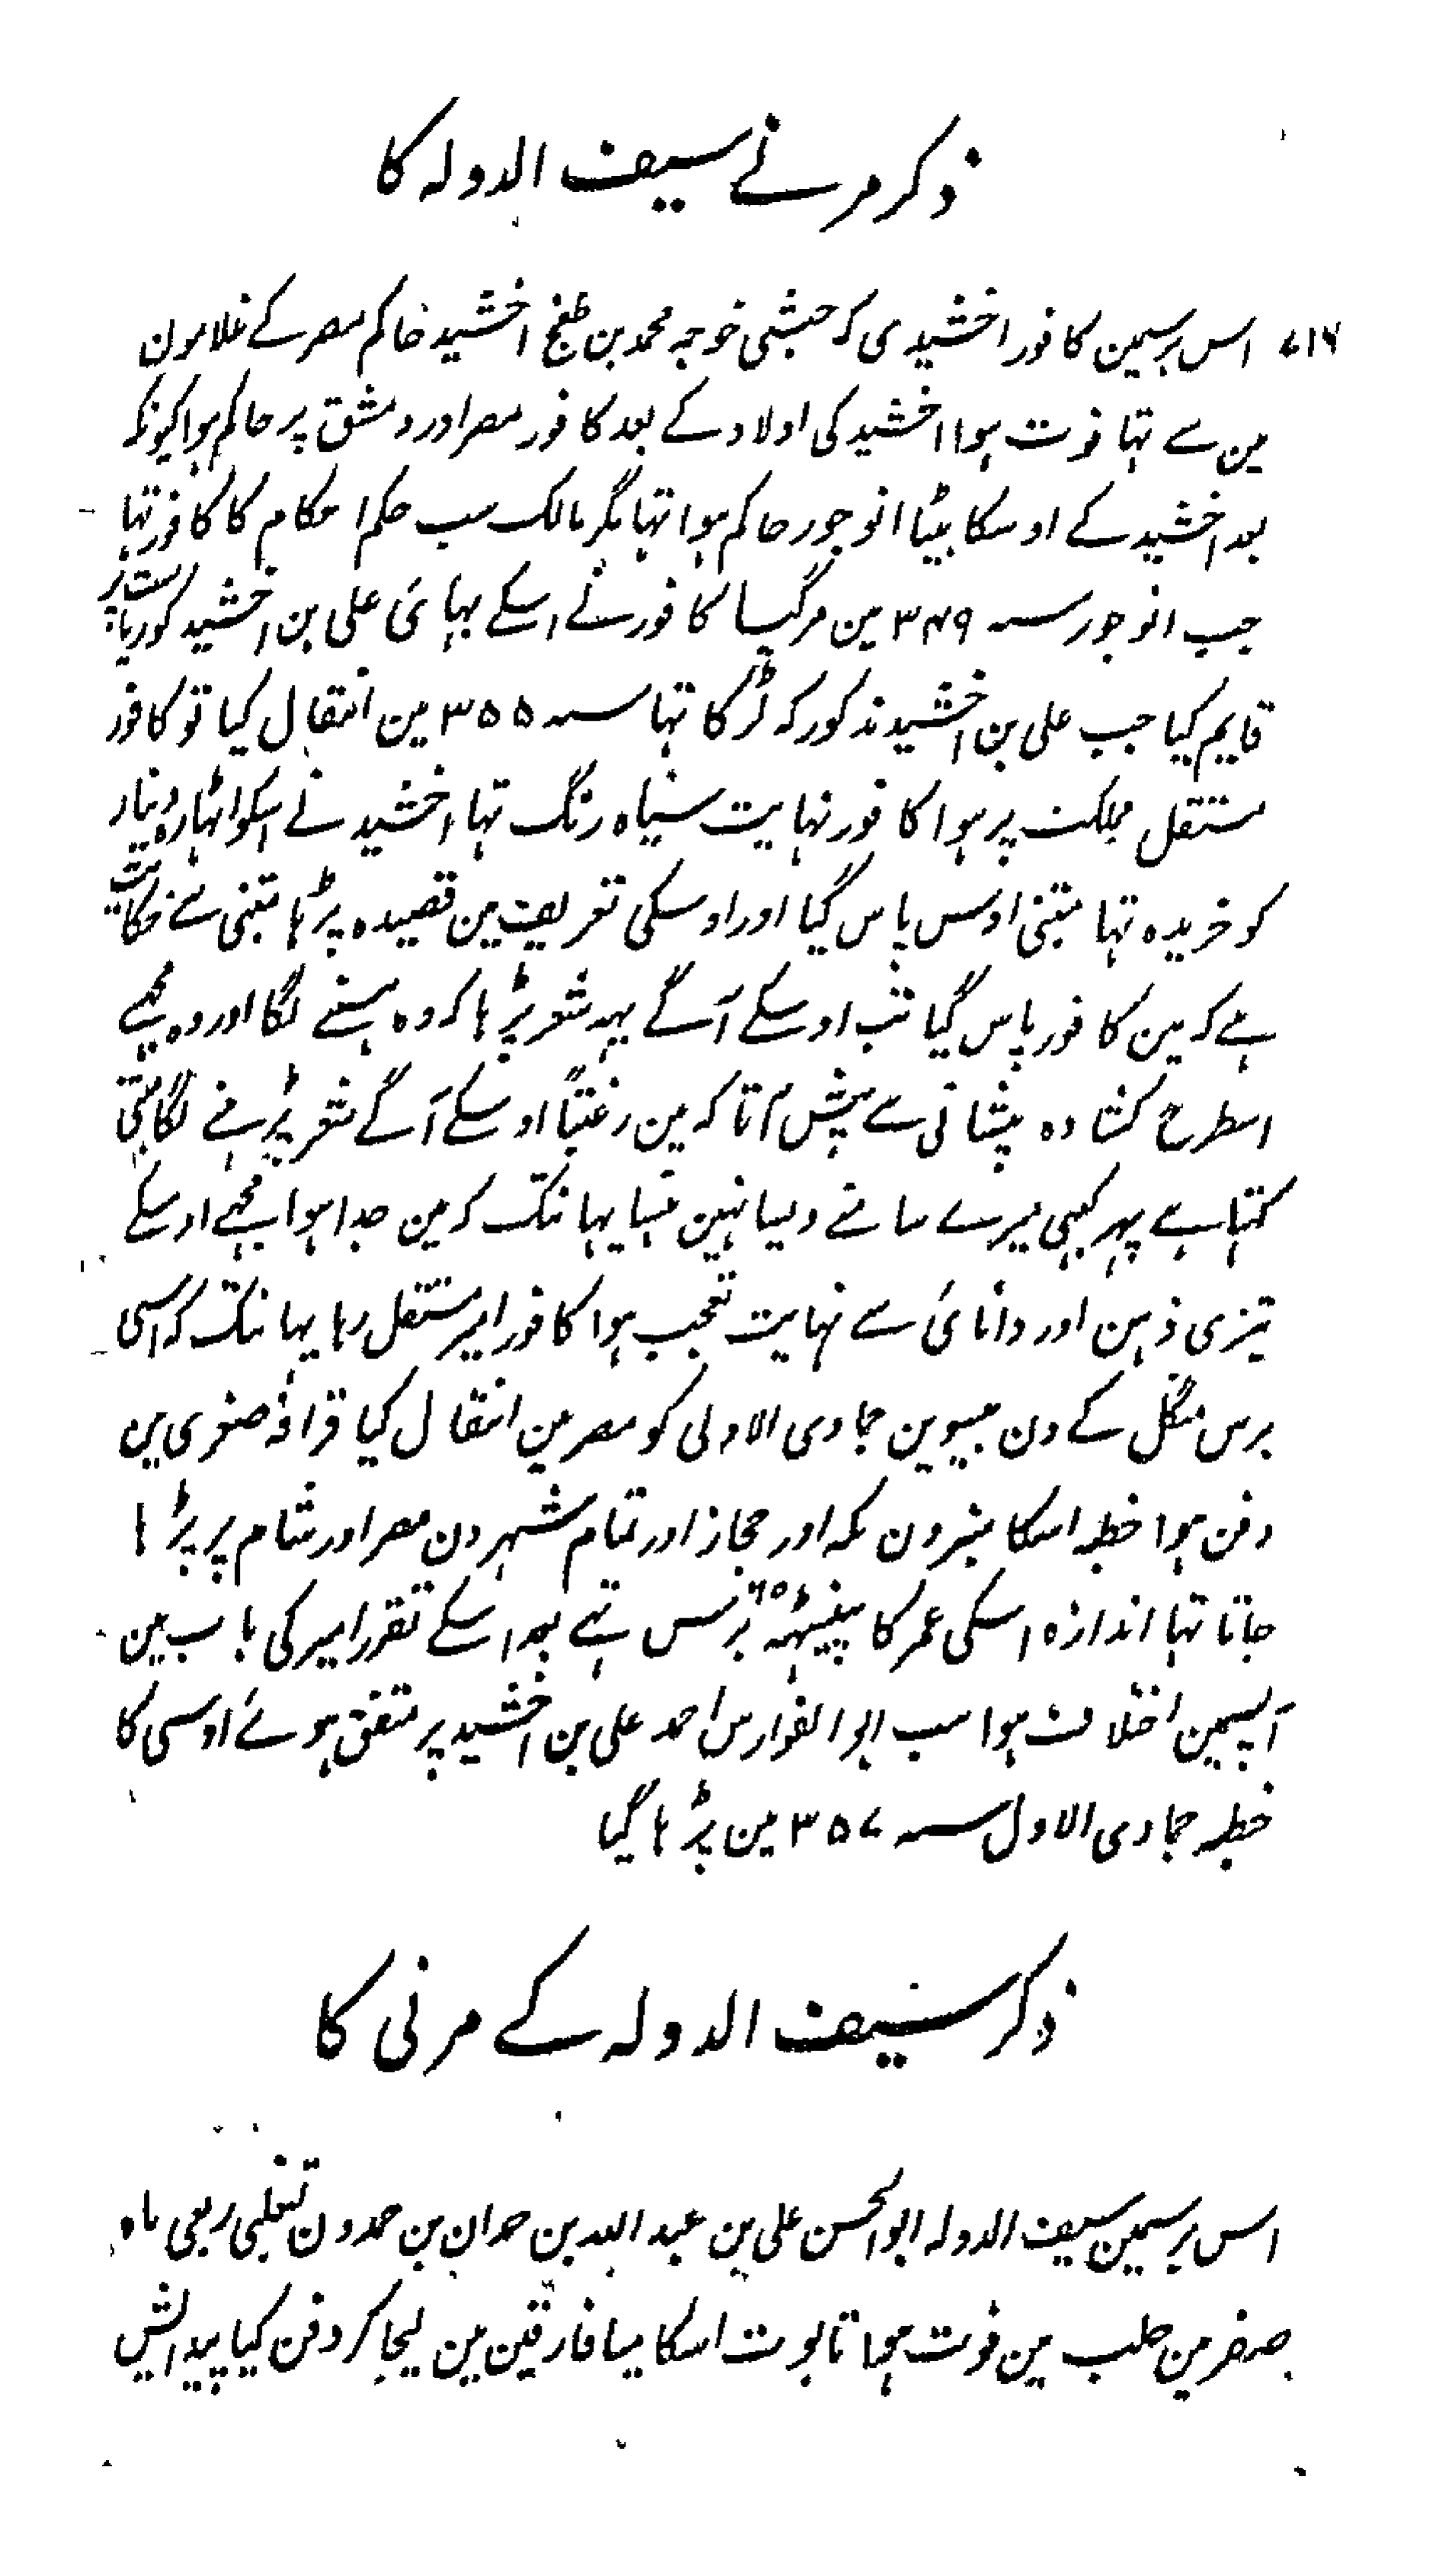 ذکر مرنے سیف الدولہ کا
۷۱۶ اس برسمین کافور اخشیدی کہ حبشی خوجہ محمد بن طغج اخشید حاکم مصر کے غلامون
مین سے تہا فوت ہوا اخشید کی اولاد کے بعد کافور مصر اور دمشق پر حاکم ہوا کیونکہ
بعد اخشید کے اوسکا بیٹا انوجور حاکم ہوا تہا مگر مالک سب حکم احکام کا کافور تہا
جب انوجور سنہ ۳۴۹ مین مرگیا کافور نے اسکے بہائی علی بن اخشید کو ریاست پر
قایم کیا جب علی بن اخشید مذکور کہ لڑکا تہا سنہ ۳۵۵ مین انتقال کیا تو کافور
مستقل مملکت پر ہوا کافور نہایت سیاہ رنگ تہا اخشید نے اسکو اٹہارہ دینار
کو خریدہ تہا متبنی اوس پاس گیا اور اوسکی تعریف مین قصیدہ پڑہا متبنی سے حکایت
ہے کہ مین کافور پاس گیا تب اوسکے آگے یہہ شعر پڑہا کہ وہ ہنسنے لگا اور وہ مجہے
اسطرح کشادہ پیشانی سے پیش آتا کہ مین رغبتاً اوسکے آگے شعر پڑہنے لگا متبنی
کہتا ہے پہر کبہی میرے سامنے ویسا نہین ہنسا یہانتک کہ مین جدا ہوا مجہے اوسکے
تیزی ذہن اور دانائی سے نہایت تعجب ہوا کافور امیر مستقل رہا یہانتک کہ اسی
برس منگل کے دن بیسوین جمادی الاولی کو مصر مین انتقال کیا قرافہ صغری مین
دفن ہوا خطبہ اسکا منبرون مکہ اور حجاز اور تمام شہرون مصر اور شام پر پڑہا
جاتا تہا اندازہ اسکی عمر کا پینسٹہہ ۶۵ برس تہے بعد اسکے تقرر امیر کی باب مین
آپسمین اختلاف ہوا سب ابو الفوارس احمد علی بن اخشید پر متفق ہوئے اوسی کا
خطبہ جمادی الاول سنہ ۳۵۷ مین پڑہا گیا
ذکر سیف الدولہ کے مرنی کا
اس برسمین سیف الدولہ ابو الحسن علی بن عبد اللہ بن حمدان بن حمدون تغلبی ربعی ماہ
صفر مین حلب مین فوت ہوا تابوت اسکا میافارقین مین لیجا کر دفن کیا پیدایش